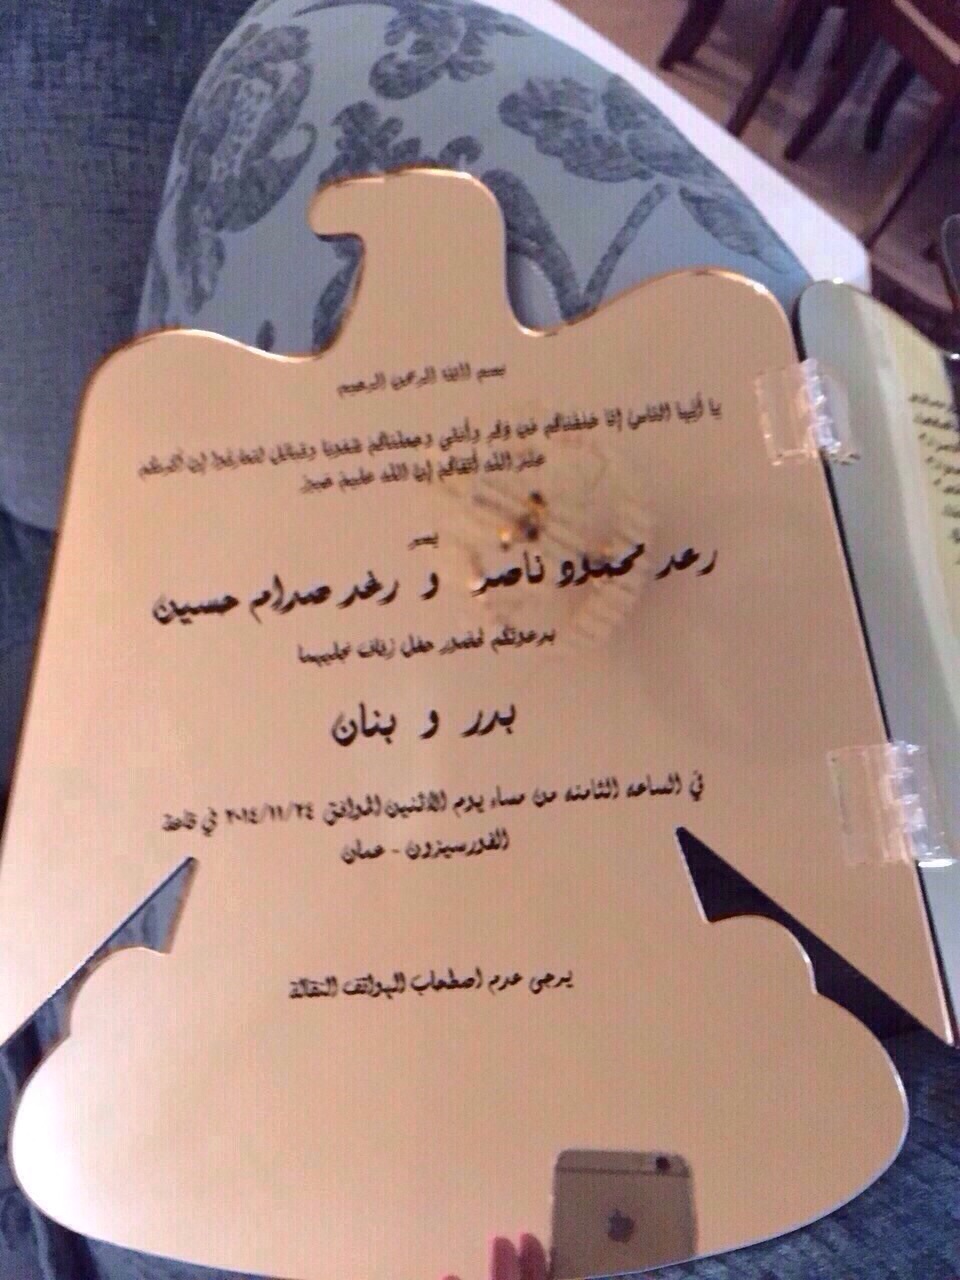 بسم الله الرحمن الرحيم
يا أيها الناس إنا خلقناكم من ذكر وأنثى وجعلناكم شعوبا وقبائل لتعارفوا إن أكرمكم
عند الله أتقاكم إن الله عليم خبير
يسر
رعد محمود ناصر و رغد صدام حسين
بدعوتكم لحضور حفل زفاف نجليهما
بدر و بنان
في الساعه الثامنه من مساء يوم الاثنين الموافق ٢٠١٤/١١/٢٤ في قاعة
الفورسيزون - عمان
يرجى عدم اصطحاب الهواتف النقالة